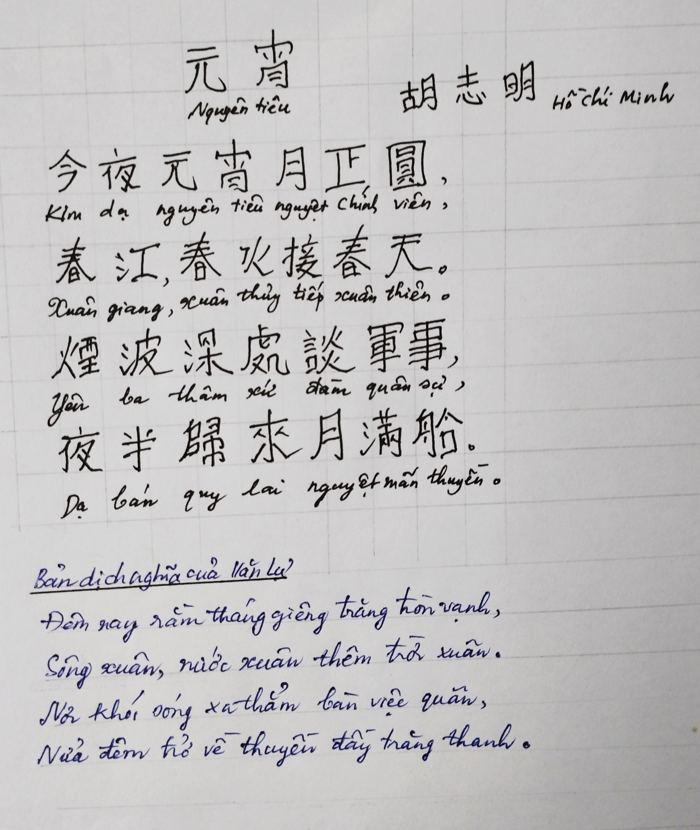 元宵 胡志明
Nguyên tiêu Hồ Chí Minh
今夜元宵月正圓,
Kim dạ nguyên tiêu nguyệt chính viên,
春江,春水接春天。
Xuân giang, xuân thủy tiếp xuân thiên.
煙波深處談軍事,
Yên ba thâm xứ đàm quân sự,
夜半歸來月滿船。
Dạ bán quy lai nguyệt mãn thuyền.
Bản dịch nghĩa của Văn Lư
Đêm nay rằm tháng giêng trăng tròn vạnh,
Sông xuân, nước xuân thêm trời xuân.
Nơi khói sóng xa thẳm bàn việc quân,
Nửa đêm trở về thuyền đầy trăng thanh.